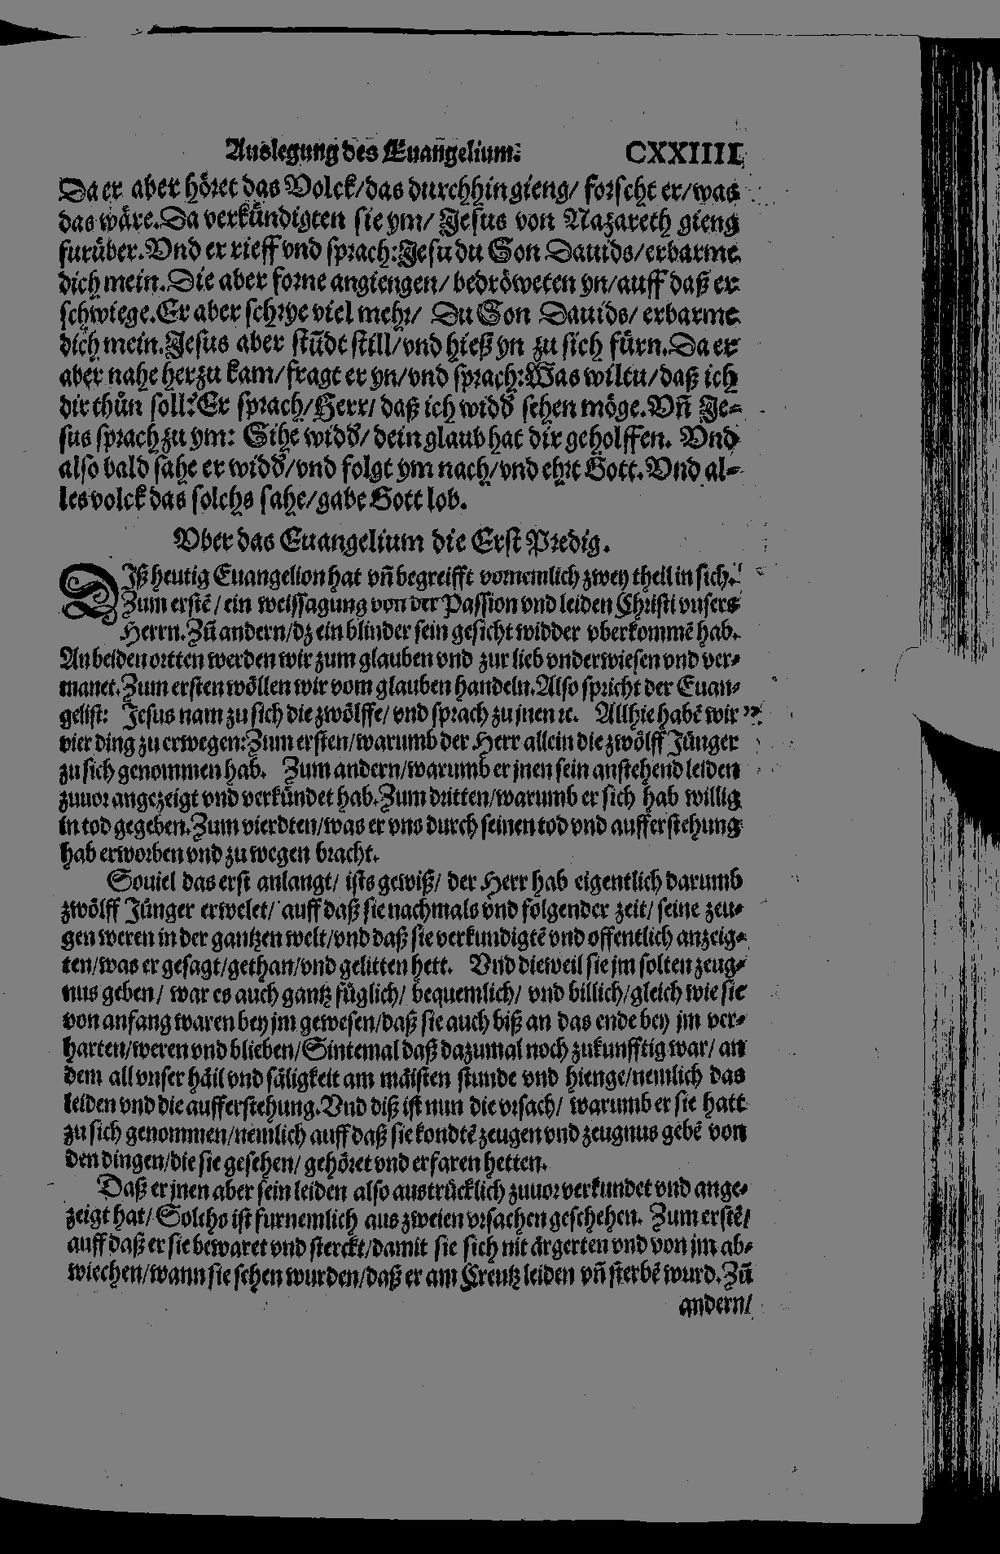 Auslegung des Euangelium. CXXIIII.
Da er aber höret das Volck/das durchhin gieng/ forscht er/was
das wäre. Da verkündigten sie ym/ Jesus von Nazareth gieng
furüber. Vnd er rieff vnd sprach: Jesu du Son Dauids/erbarme
dich mein. Die aber forne angiengen/ bedröweten yn/auff daß er
schwiege. Er aber schrye viel mehr/ Du Son Dauids/ erbarme
dich mein. Jesus aber stůdt still/vnd hieß yn zu sich fürn. Da er
aber nahe herzu kam/fragt er yn/vnd sprach: Was wiltu/daß ich
dir thůn soll? Er sprach/Herr/ daß ich widď sehen möge. Vñ Je-
sus sprach zu ym: Sihe widď/dein glaub hat dir geholffen. Vnd
also bald sahe er widď/vnd folgt ym nach/vnd ehrt Gott. Vnd al-
les volck das solchs sahe/gabe Gott lob.
Vber das Euangelium die Erst Predig.
DIß heutig Euangelion hat vñ begreifft vornemlich zwey theil in sich.
Zum erstē/ ein weissagung von der Passion vnd leiden Christi vnsers
Herrn. Zũ andern/dz ein blinder sein gesicht widder vberkommē hab.
An beiden ortten werden wir zum glauben vnd zur lieb vnderwiesen vnd ver-
manet. Zum ersten wöllen wir vom glauben handeln. Also spricht der Euan-
gelist: Jesus nam zu sich die zwölffe/ vnd sprach zu jnen ꝛc. Allhie habē wir
vier ding zu erwegen: Zum ersten/warumb der Herr allein die zwölff Jünger
zu sich genommen hab. Zum andern/warumb er jnen sein anstehend leiden
zuuor angezeigt vnd verkündet hab. Zum dritten/warumb er sich hab willig
in tod gegeben. Zum vierdten/was er vns durch seinen tod vnd aufferstehung
hab erworben vnd zu wegen bracht.
Souiel das erst anlangt/ ists gewiß/ der Herr hab eigentlich darumb
zwölff Jünger erwelet/ auff daß sie nachmals vnd folgender zeit/ seine zeu-
gen weren in der gantzen welt/vnd daß sie verkundigtē vnd offentlich anzeig-
ten/was er gesagt/gethan/vnd gelitten hett. Vnd dieweil sie jm solten zeug-
nus geben/ war es auch gantz füglich/ bequemlich/ vnd billich/gleich wie sie
von anfang waren bey jm gewesen/daß sie auch biß an das ende bey jm ver-
harten/weren vnd blieben/Sintemal daß dazumal noch zukunfftig war/ an
dem all vnser häil vnd säligkeit am mäisten stunde vnd hienge/nemlich das
leiden vnd die aufferstehung. Vnd diß ist nun die vrsach/ warumb er sie hatt
zu sich genommen/nemlich auff daß sie kondtē zeugen vnd zeugnus gebē von
den dingen/die sie gesehen/ gehöret vnd erfaren hetten.
Daß er jnen aber sein leiden also austrücklich zuuor verkundet vnd ange-
zeigt hat/ Solchs ist furnemlich aus zweien vrsachen geschehen. Zum erstē/
auff daß er sie bewaret vnd sterckt/damit sie sich nit ärgerten vnd von jm ab-
wiechen/wann sie sehen wurden/daß er am Creutz leiden vñ sterbē wurd. Zũ
andern/